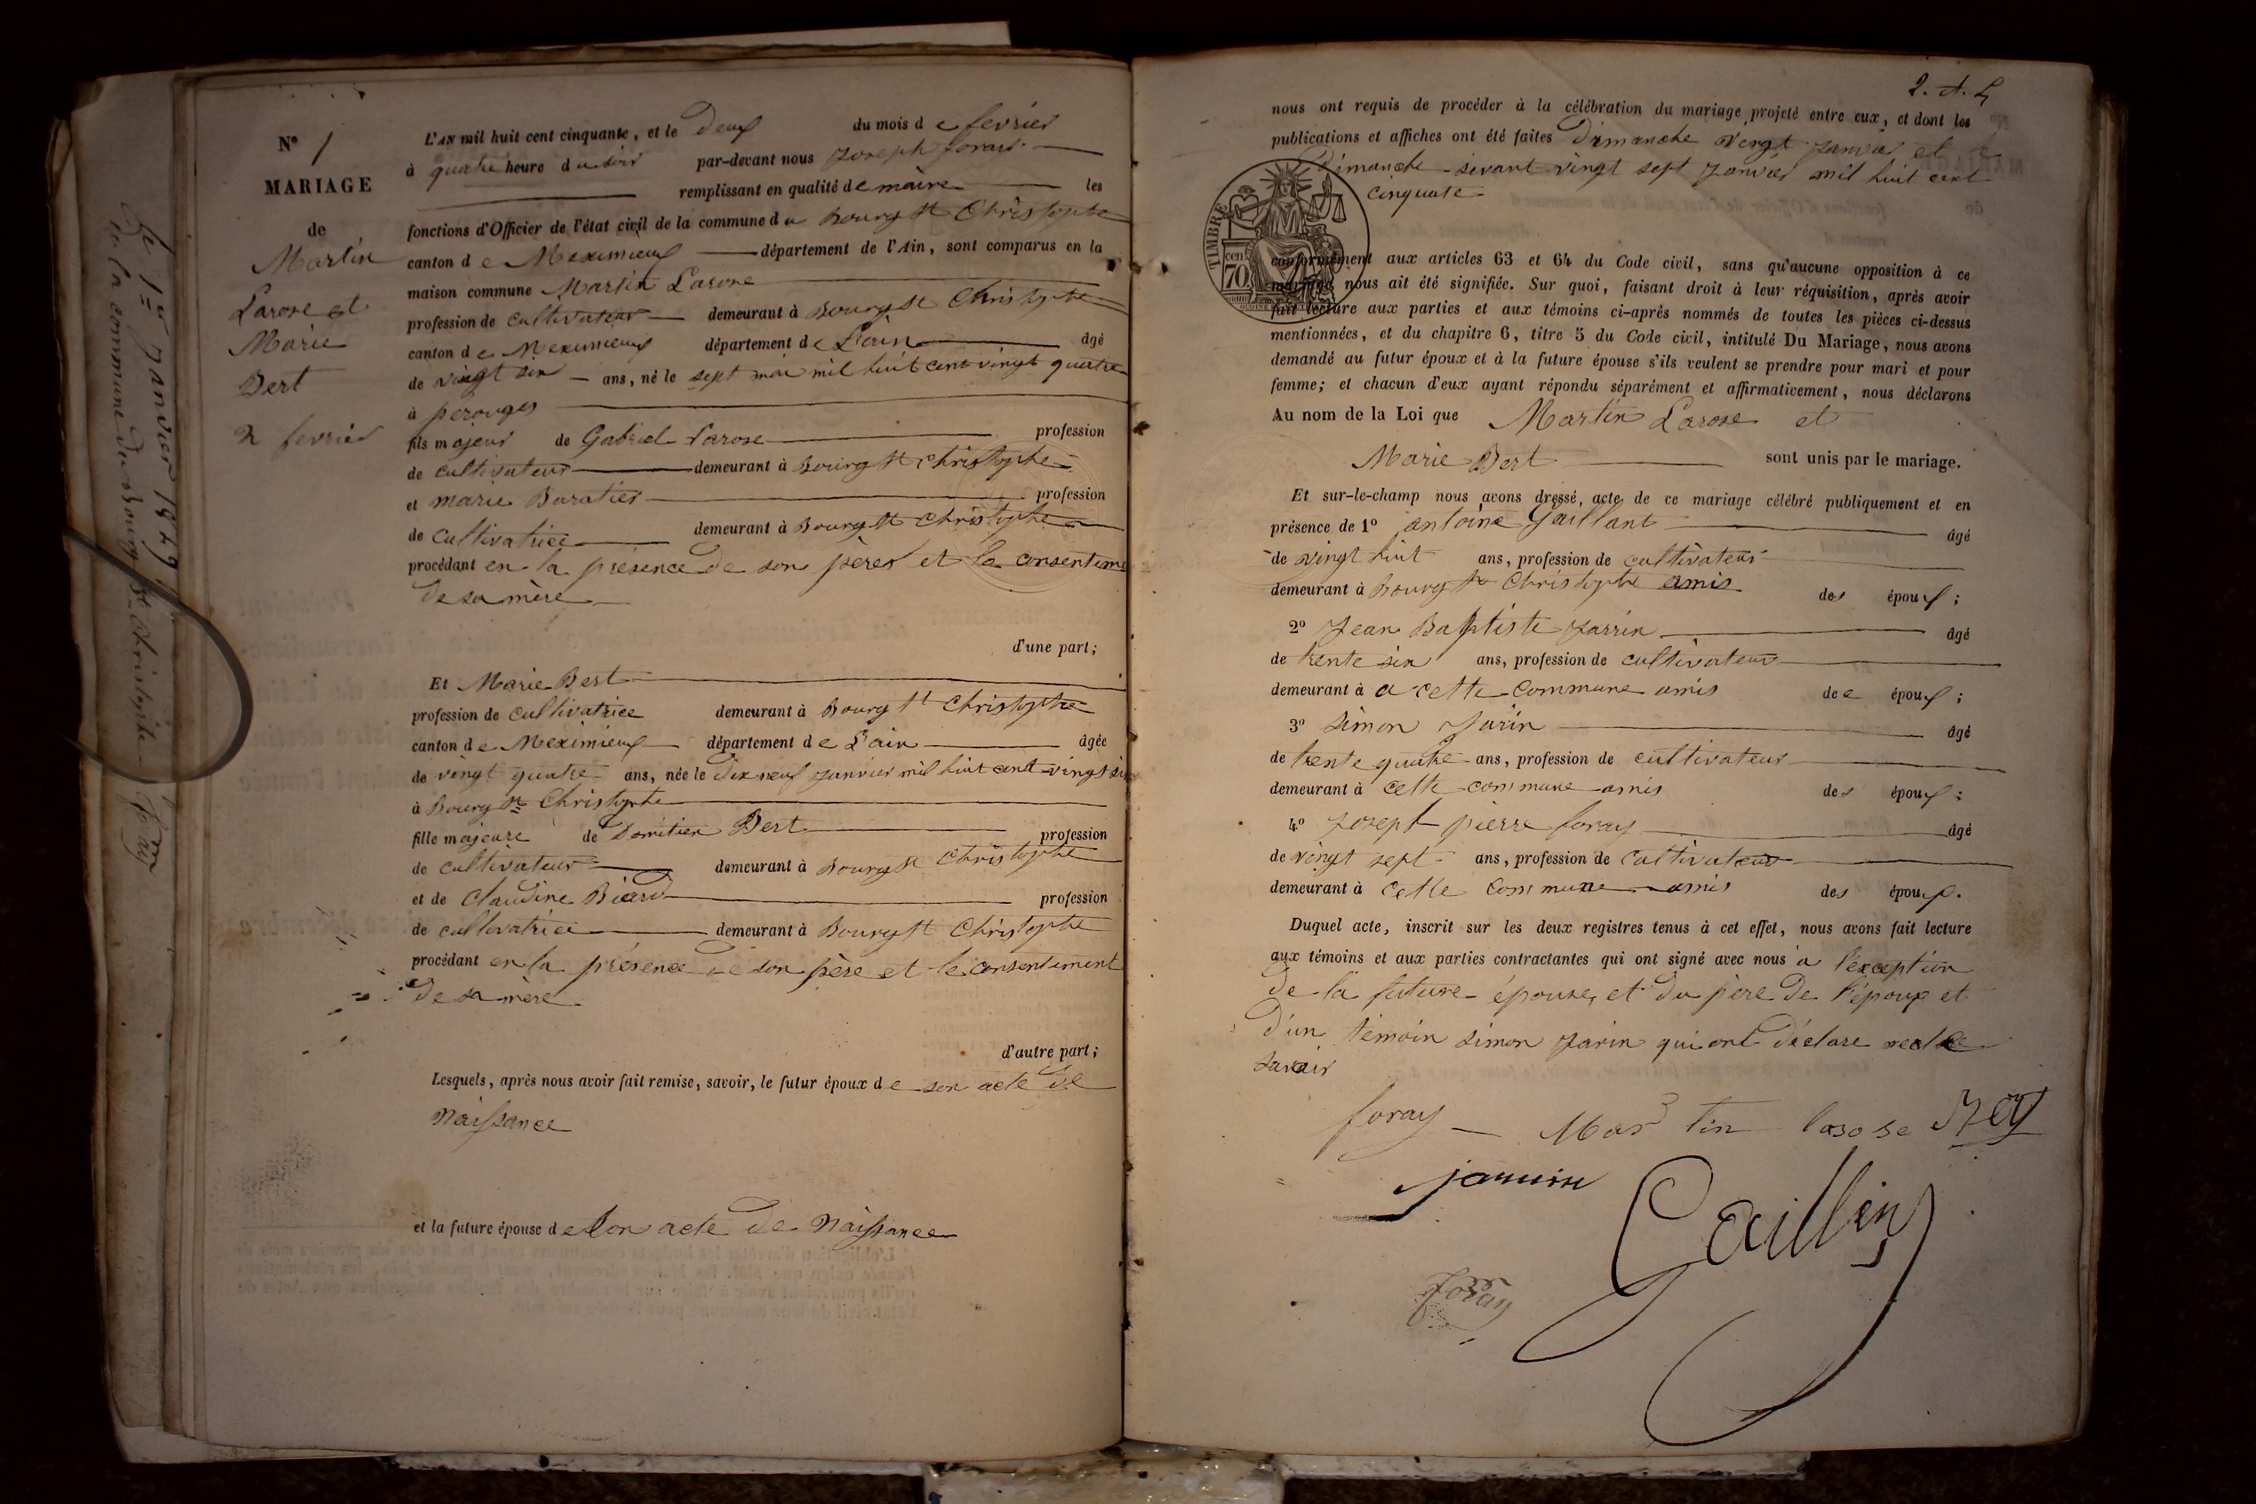 Nº 1
MARIAGE
de
Martin
Larose et
Marie
Bert
2 fevrier
L'AN mil huit cent cinquante, et le deux du mois de fevrier
à quatre heure du soir par-devant nous Joseph foray
remplissant en qualité de maire les
fonctions d'Officier de l'état civil de la commune du Bourg St Christophe
canton de Meximieux département de l'Ain, sont comparus en la
maison commune Martin Larose
profession de cultivateur demeurant à Bourg St Christophe
canton de Meximieux département de L'ain âgé
de vingt six ans, né le sept mai mil huit cent vingt quatre
à perouges
fils majeur de Gabriel Larose profession
de cultivateur demeurant à Bourg St Christophe
et marie Baratier profession
de cultivatrice demeurant à Bourg St Christophe
procédant en la présence de son père et le consentime
de sa mère
d'une part;
Et Marie Bert
profession de cultivatrice demeurant à Bourg St Christophe
canton de Meximieux département de L'ain âgée
de vingt quatre ans, née le dix neuf janvier mil huit cent vingt six
à Bourg St Christophe
fille majeure de Domitien Bert profession
de cultivateur demeurant à Bourg St Christophe
et de Claudine Biard profession
de cultivatrice demeurant à Bourg St Christophe
procédant en la présence de son père et le consentiment
de sa mère
d'autre part;
Lesquels, après nous avoir fait remise, savoir, le futur époux de son acte de
Naissance
et la future épouse de son acte de Naissance
Le 1er janvier 1849
de la commune du Bourg St Christophe foray
2. A. L
nous ont requis de procéder à la célébration du mariage projeté entre eux, et dont les
publications et affiches ont été faites dimanche vingt janvier et
dimanche sivant vingt sept janvier mil huit cent
cinquate
TIMBRE
70 cent
conformément aux articles 63 et 64 du Code civil, sans qu'aucune opposition à ce
mariage nous ait été signifiée. Sur quoi, faisant droit à leur réquisition, après avoir
fait lecture aux parties et aux témoins ci-après nommés de toutes les pièces ci-dessus
mentionnées, et du chapitre 6, titre 5 du Code civil, intitulé Du Mariage, nous avons
demandé au futur époux et à la future épouse s'ils veulent se prendre pour mari et pour
femme; et chacun d'eux ayant répondu séparément et affirmativement, nous déclarons
Au nom de la Loi que Martin Larose et
Marie Bert sont unis par le mariage.
Et sur-le-champ nous avons dressé acte de ce mariage célébré publiquement et en
présence de 1º antoine Gaillant âgé
de vingt huit ans, profession de cultivateur
demeurant à Bourg St Christophe amis des époux;
2º Jean Baptiste Jarrin âgé
de trente six ans, profession de cultivateur
demeurant à a cette commune amis de e époux;
3º Simon Jarin âgé
de trente quatre ans, profession de cultivateur
demeurant à cette commune amis des époux;
4º Joseph pierre foray âgé
de vingt sept ans, profession de cultivateur
demeurant à cette commune amis des époux.
Duquel acte, inscrit sur les deux registres tenus à cet effet, nous avons fait lecture
aux témoins et aux parties contractantes qui ont signé avec nous à l'exception
de la future épouse, et du père de l'époux et
d'un témoin simon jarin qui ont déclare ne le
savoir
foray Martin larose
Gaillin
foray